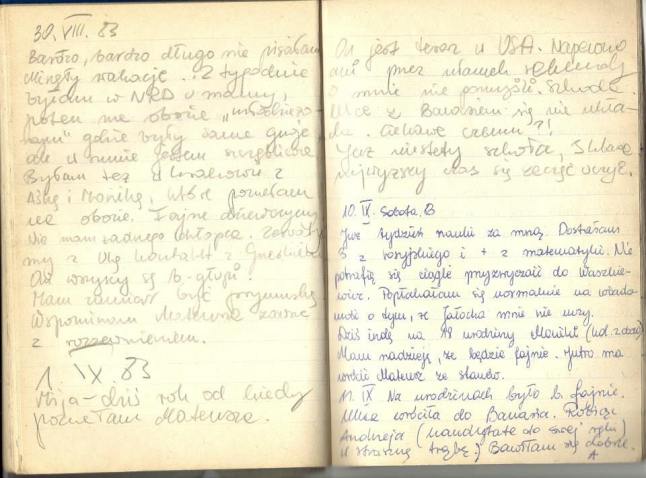 30. VIII. 83
Bardzo, bardzo długo nie pisałam
Minęły wakacje. 2 tygodnie
byłam w NRD u mamy,
potem na obozie
gdzie były same
ale w sumie jestem szczęśliwa
Byłam też w Krakowie z
Aśką i Moniką, które poznałam
na obozie. Fajne dziewczyny
Nie mam żadnego chłopca.
my z Olą kontakt z
Oni wszyscy są b. głupi
Mam zamiar być prymuską
Wspominam Mateusza zawsze
z rozrzewnieniem.
1 IX 83
Mija dziś rok od kiedy
poznałam Mateusza.
On jest teraz w USA. Napewno
ani przez ułamek sekundy
o mnie nie pomyśli. Szkoda.
Ulce z Banasiem się nie ukła-
da. Ciekawe czemu?!
Już niestety szkoła, 3 klasa
najwyższy czas się zacząć uczyć.
10. IX. Sobota. 83
Już tydzień nauki za mną. Dostałam
5 z rosyjskiego i + z matematyki. Nie
potrafię się ciągle przyzwyczaić do
Popłakałam się normalnie na wiado-
mość o tym, że Jałocha mnie nie uczy.
Dziś idę na 18 urodziny Moniki
Mam nadzieję, że będzie fajnie. Jutro ma
wrócić Mateusz ze stanów.
11. IX Na urodzinach było b. fajnie.
Ulka wróciła do Banasia. Robiąc
Andrzeja (kandydata do swej ręki)
w straszną trąbę. Bawiłam się dobrze.